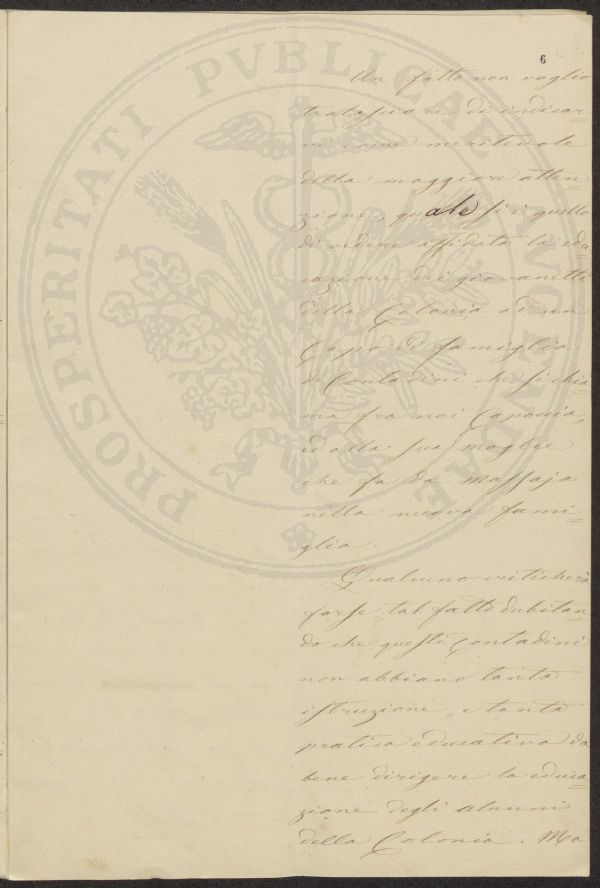 6
Un fatto non voglio
tralasciare di indicar
vi come meritevole
della maggiore atten
zione, quale si è quello
di vedere affidata la edu
cazione dei giovanetti
della Colonia ad un
Capo di famiglia
di Contadini che si chia
ma fra noi Capoccia,
ed alla sua moglie
che fa da Massaja
nella nuova fami
glia.
Qualcuno criticherà
forse tal fatto dubitan
do che questi Contadini
non abbiano tanta
istruzione, e tanta
pratica educativa da
bene dirigere la educa
zione degli alunni
della Colonia. Ma
PROSPERITATI PVBLICAE AVGENDAE